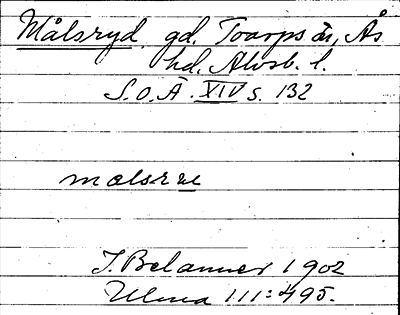 Målsryd, gd. Toarps sn, Ås
hd. Älvsb. l.
S.O.Ä. XIV s. 132
målsrɯ
J. Belanner 1902
Ulma 111:495.